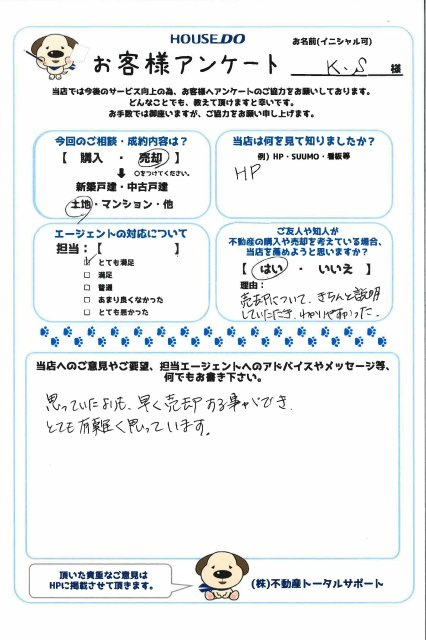 HOUSEDO
お客様アンケート
お名前(イニシャル可)
K.S 様
当店では今後のサービス向上の為、お客様へアンケートのご協力をお願いしております。
どんなことでも、教えて頂けますと幸いです。
お手数では御座いますが、ご協力をお願い申し上げます。
今回のご相談・成約内容は?
【 購入 ・ 売却 】
○をつけてください。
新築戸建・中古戸建
土地・マンション・他
当店は何を見て知りましたか?
例) HP・SUUMO・看板等
HP
エージェントの対応について
担当:【 】
☑ とても満足
□ 満足
□ 普通
□ あまり良くなかった
□ とても悪かった
ご友人や知人が
不動産の購入や売却を考えている場合、
当店を薦めようと思いますか?
【 はい ・ いいえ 】
理由:
売却について、きちんと説明
していただき、わかりやすかった。
当店へのご意見やご要望、担当エージェントへのアドバイスやメッセージ等、
何でもお書き下さい。
思っていたよりも、早く売却する事ができ、
とても有難く思っています。
頂いた貴重なご意見は
HPに掲載させて頂きます。
(株)不動産トータルサポート